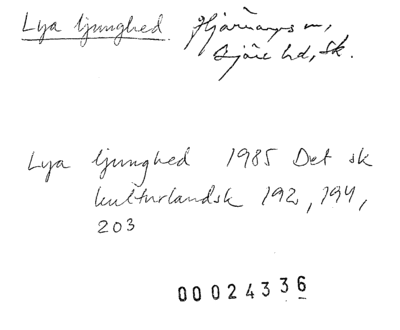 Lya ljunghed Hjärnarps sn,
Bjäre hd, Sk.
Lya ljunghed 1985 Det sk
kulturlandsk 192, 194,
203
00024336